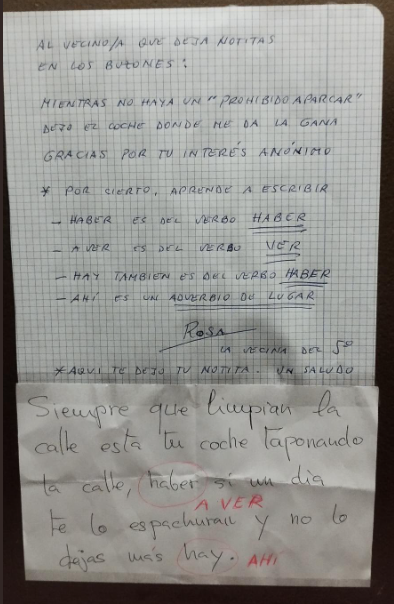 AL VECINO/A QUE DEJA NOTITAS
EN LOS BUZONES:
MIENTRAS NO HAYA UN "PROHIBIDO APARCAR"
DEJO EL COCHE DONDE ME DA LA GANA
GRACIAS POR TU INTERÉS ANÓNIMO
* POR CIERTO, APRENDE A ESCRIBIR
- HABER ES DEL VERBO HABER
- A VER ES DEL VERBO VER
- HAY TAMBIEN ES DEL VERBO HABER
- AHÍ ES UN ADVERBIO DE LUGAR
ROSA
LA VECINA DEL 5º
* AQUI TE DEJO TU NOTITA. UN SALUDO
Siempre que limpian la
calle esta tu coche taponando
la calle, haber si un dia
A VER
te lo espachuran y no lo
dejas más hay. AHÍ